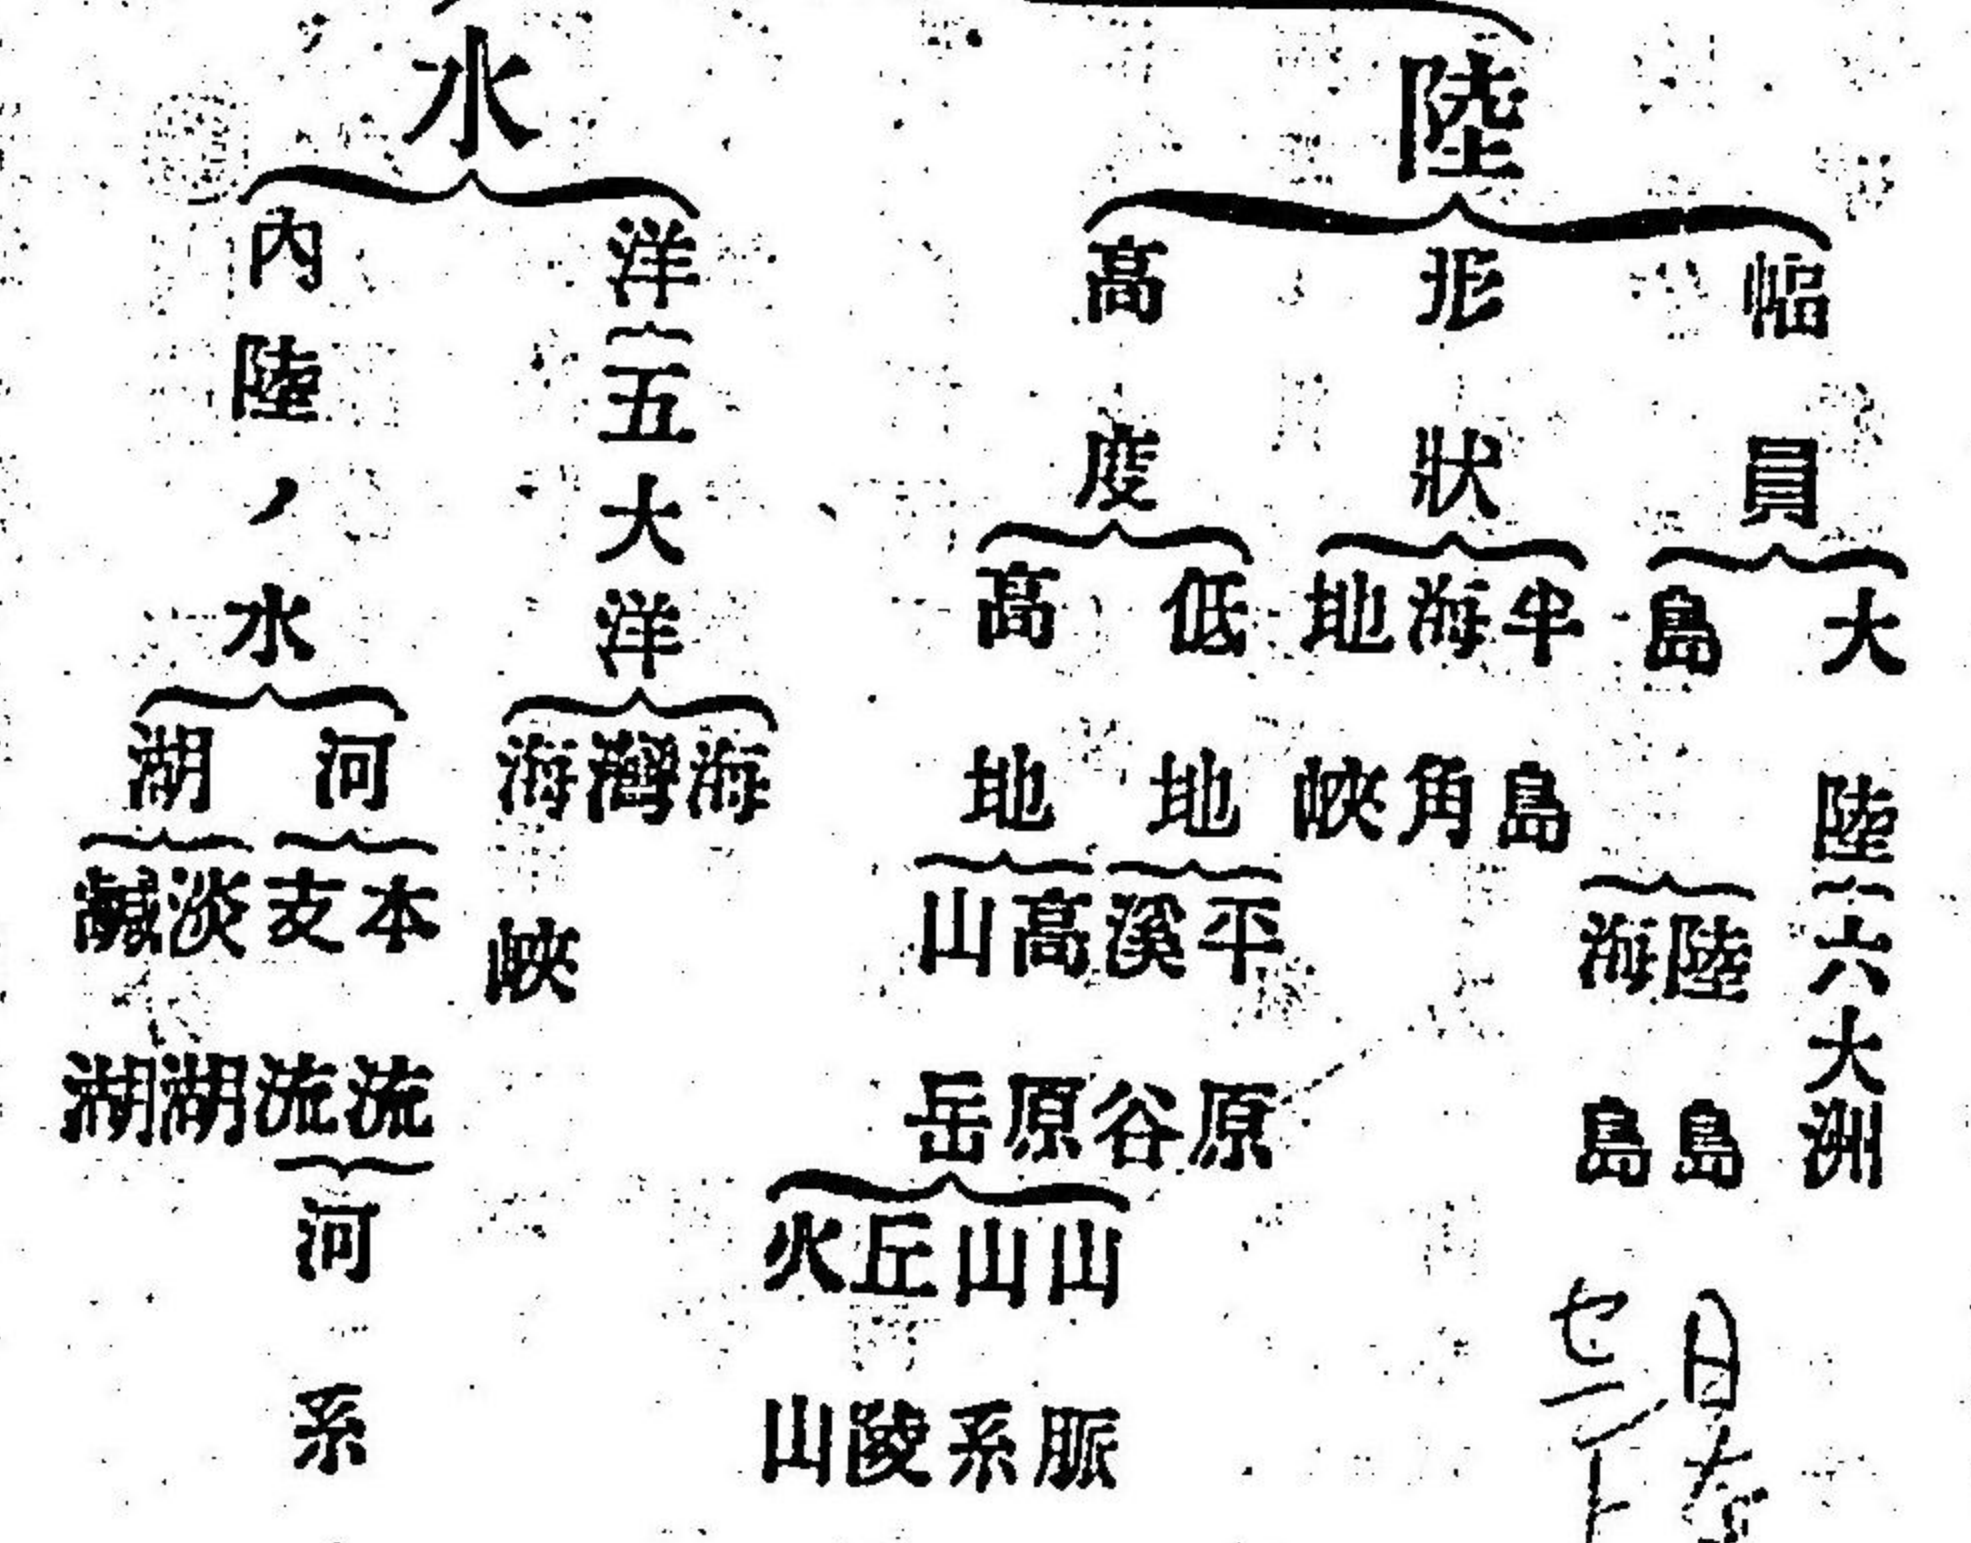 陸
幅員
大陸
六大洲
島
陸島
海島
形狀
半島
海角
地峽
高度
低地
平原
溪谷
高地
高原
山岳
山脈
山系
丘陵
火山
水
洋
五大洋
海
灣
海峽
內陸ノ水
河
本流
支流
河系
湖
淡湖
鹹湖